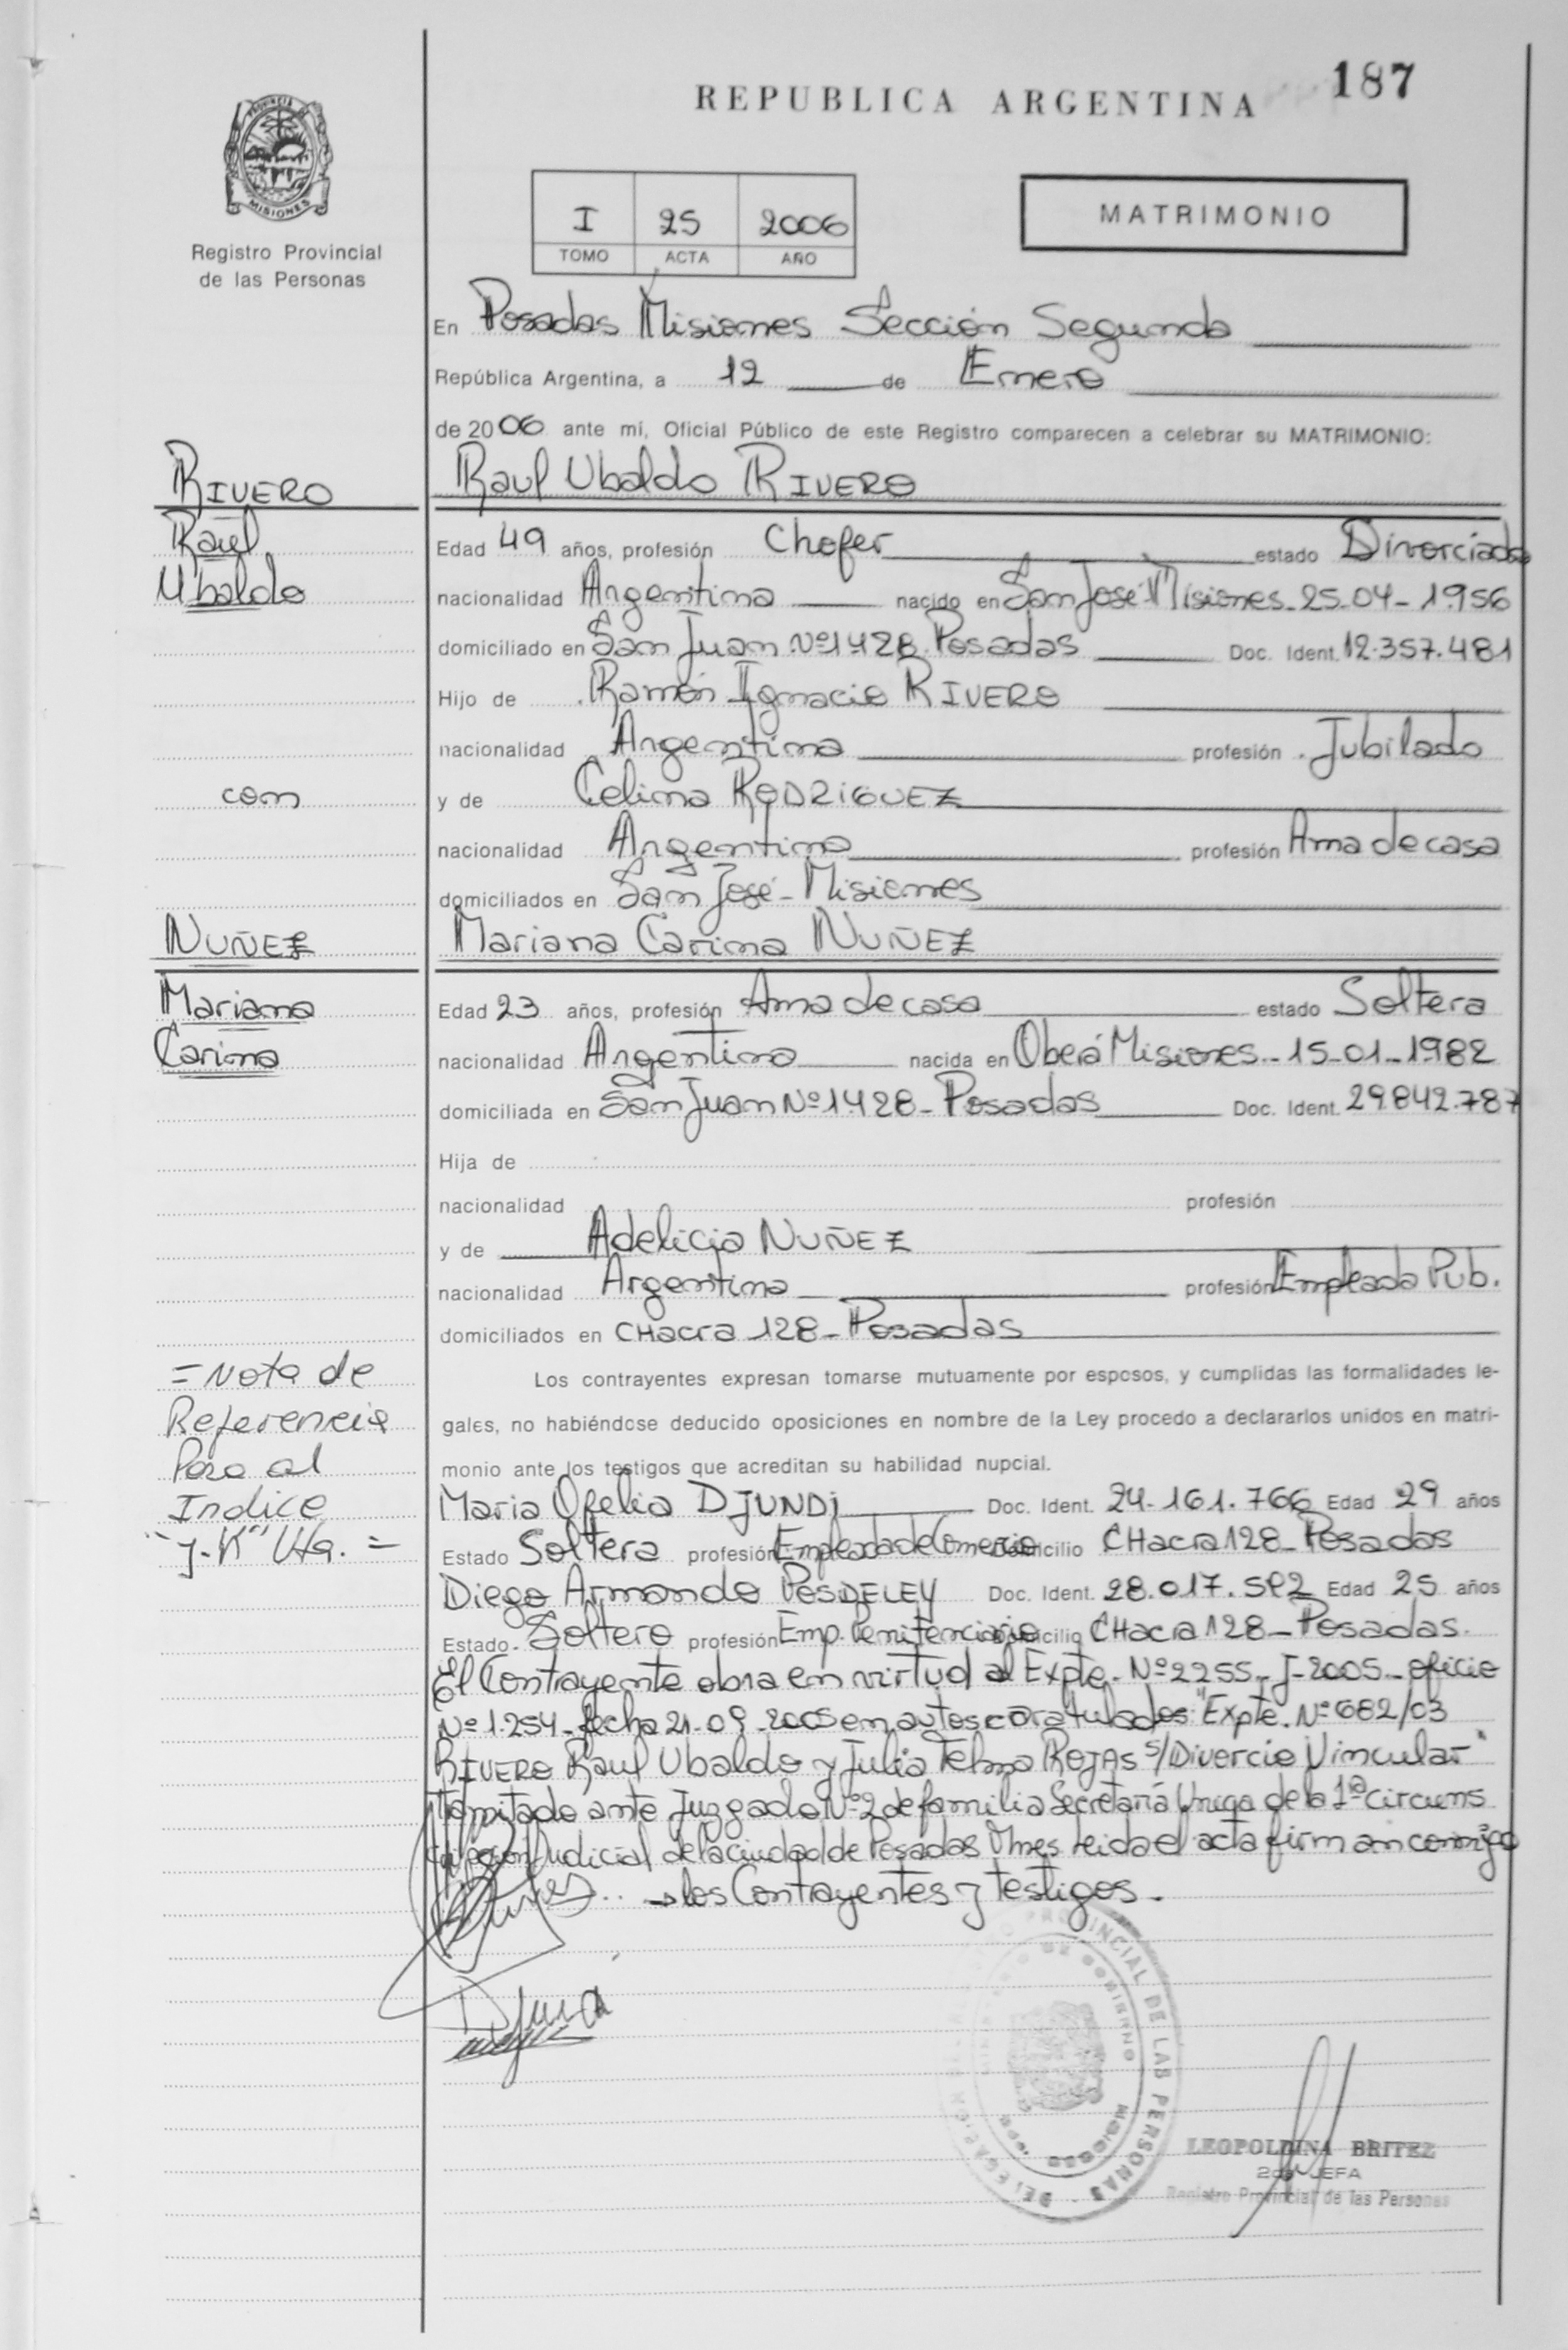 187
REPUBLICA ARGENTINA
PROVINCIA DE MISIONES
Registro Provincial
de las Personas
I 25 2006
TOMO ACTA AÑO
MATRIMONIO
En Posadas Misiones Sección Segunda
República Argentina, a 12 de Enero
de 2006 ante mí, Oficial Público de este Registro comparecen a celebrar su MATRIMONIO:
RIVERO
Raul Ubaldo RIVERO
Raúl
Edad 49 años, profesión Chofer estado Divorciado
Ubaldo
nacionalidad Argentina nacido en San José Misiones - 25-04-1956
domiciliado en San Juan Nº 1428 Posadas Doc. Ident. 12.357.481
Hijo de Ramón Ignacio RIVERO
nacionalidad Argentina profesión Jubilado
con
y de Celina RODRIGUEZ
nacionalidad Argentina profesión Ama de casa
domiciliados en San José - Misiones
NUÑEZ
Mariana Carina NUÑEZ
Mariana
Edad 23 años, profesión Ama de casa estado Soltera
Carina
nacionalidad Argentina nacida en Oberá Misiones - 15-01-1982
domiciliada en San Juan Nº 1428 - Posadas Doc. Ident. 29.842.787
Hija de
nacionalidad profesión
y de Adelicia NUÑEZ
nacionalidad Argentina profesión Empleada Pub.
domiciliados en CHacra 128 - Posadas
= Nota de
Referencia
Para al
Indice
Los contrayentes expresan tomarse mutuamente por esposos, y cumplidas las formalidades le-
gales, no habiéndose deducido oposiciones en nombre de la Ley procedo a declararlos unidos en matri-
monio ante los testigos que acreditan su habilidad nupcial.
Maria Ofelia DJUNDi Doc. Ident. 24.161.766 Edad 29 años
Estado Soltera profesión Empleada de Comercio Domicilio CHacra 128 - Posadas
Diego Armando POSDELEY Doc. Ident. 28.017.592 Edad 25 años
Estado Soltero profesión Emp. Penitenciario Domicilio CHacra 128 - Posadas.
El Contrayente obra en virtud al Expte. Nº 2255 - J - 2005 - oficio
Nº 1.254 - fecha 21-09-2005 en autos caratulados: "Expte. Nº 682/03
RIVERO Raul Ubaldo y Julia Telma ROJAS s/Divorcio Vincular"
Tramitado ante Juzgado Nº 2 de familia Secretaría Unica de la 1ª circuns
cripción Judicial de la ciudad de Posadas Mnes leida el acta firman conmigo
los Contrayentes y testigos.
REGISTRO PROVINCIAL DE LAS PERSONAS
MINISTERIO DE GOBIERNO
MISIONES
DELEGACION
LEOPOLDINA BRITEZ
2da JEFA
Registro Provincial de las Personas